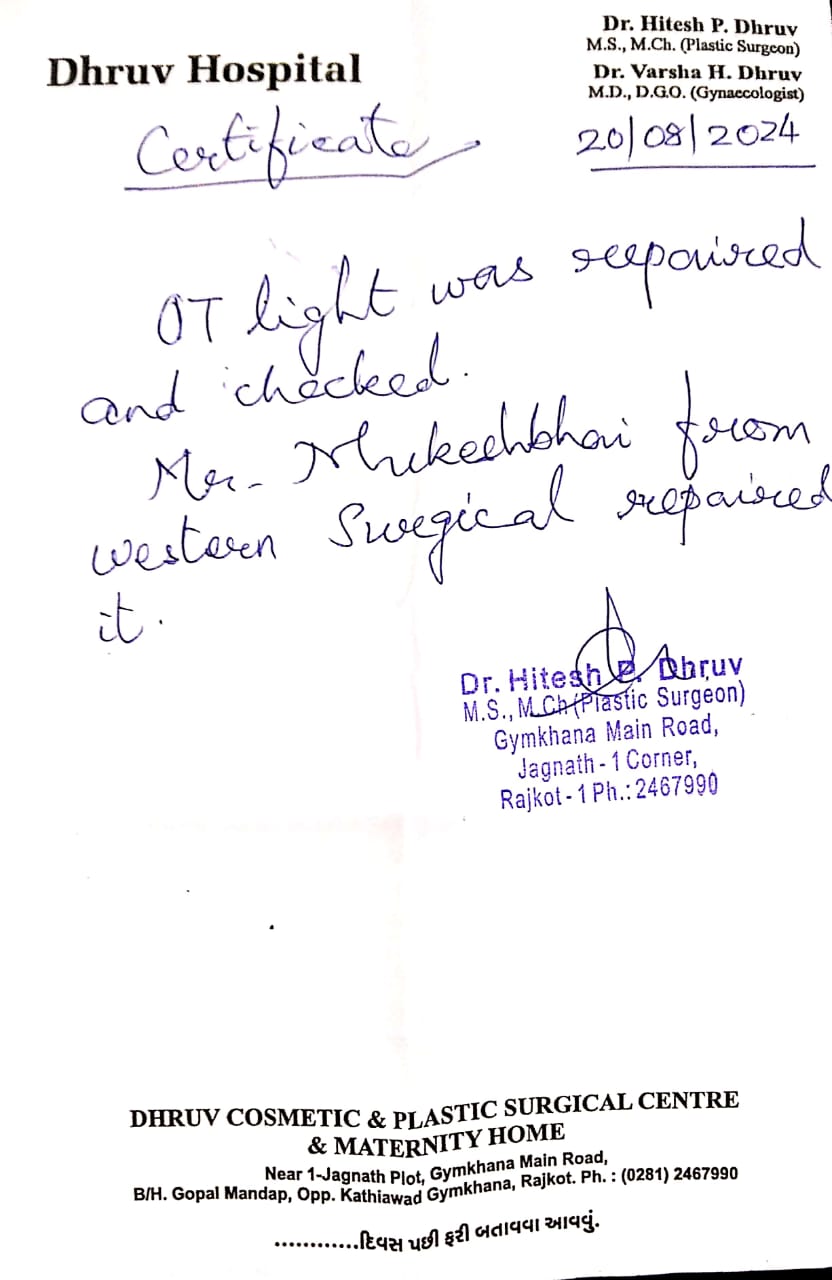 Dhruv Hospital
Dr. Hitesh P. Dhruv
M.S., M.Ch. (Plastic Surgeon)
Dr. Varsha H. Dhruv
M.D., D.G.O. (Gynaecologist)
Certificate
20/08/2024
OT light was repaired
and checked.
Mr. Mukeshbhai from
western Surgical repaired
it.
Dr. Hitesh P. Dhruv
M.S., M.Ch (Plastic Surgeon)
Gymkhana Main Road,
Jagnath - 1 Corner,
Rajkot - 1 Ph.: 2467990
DHRUV COSMETIC & PLASTIC SURGICAL CENTRE
& MATERNITY HOME
Near 1-Jagnath Plot, Gymkhana Main Road,
B/H. Gopal Mandap, Opp. Kathiawad Gymkhana, Rajkot. Ph. : (0281) 2467990
............દિવસ પછી ફરી બતાવવા આવવું.